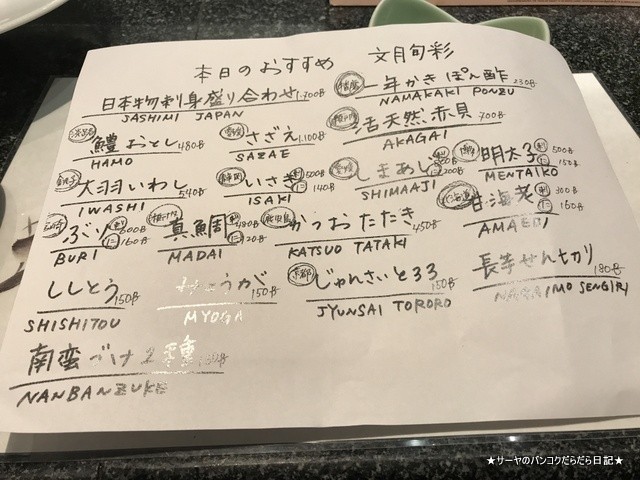 本日のおすすめ 文月旬彩
日本物刺身盛り合わせ 1.700฿
JASHIMI JAPAN
一年かき ぽん酢 230฿
NAMAKAKI PONZU
鱧おとし 480฿
HAMO
さざえ 1.100฿
SAZAE
活天然赤貝 700฿
AKAGAI
大羽いわし 540฿
IWASHI
いさき 500฿
140฿
ISAKI
しまあじ
200฿
SHIMAAJI
明太子 500฿
150฿
MENTAIKO
ぶり 600฿
160฿
BURI
真鯛 480฿
120฿
MADAI
かつおたたき 450฿
KATSUO TATAKI
甘海老 300฿
160฿
AMAEBI
ししとう 150฿
SHISHITOU
みょうが 150฿
MYOGA
京都 じゅんさいとろろ 150฿
JYUNSAI TORORO
長芋せん切り 180฿
IMO SENGIRI
南蛮づけ2種
NANBANZUKE
★サーヤのバンコクだらだら日記★